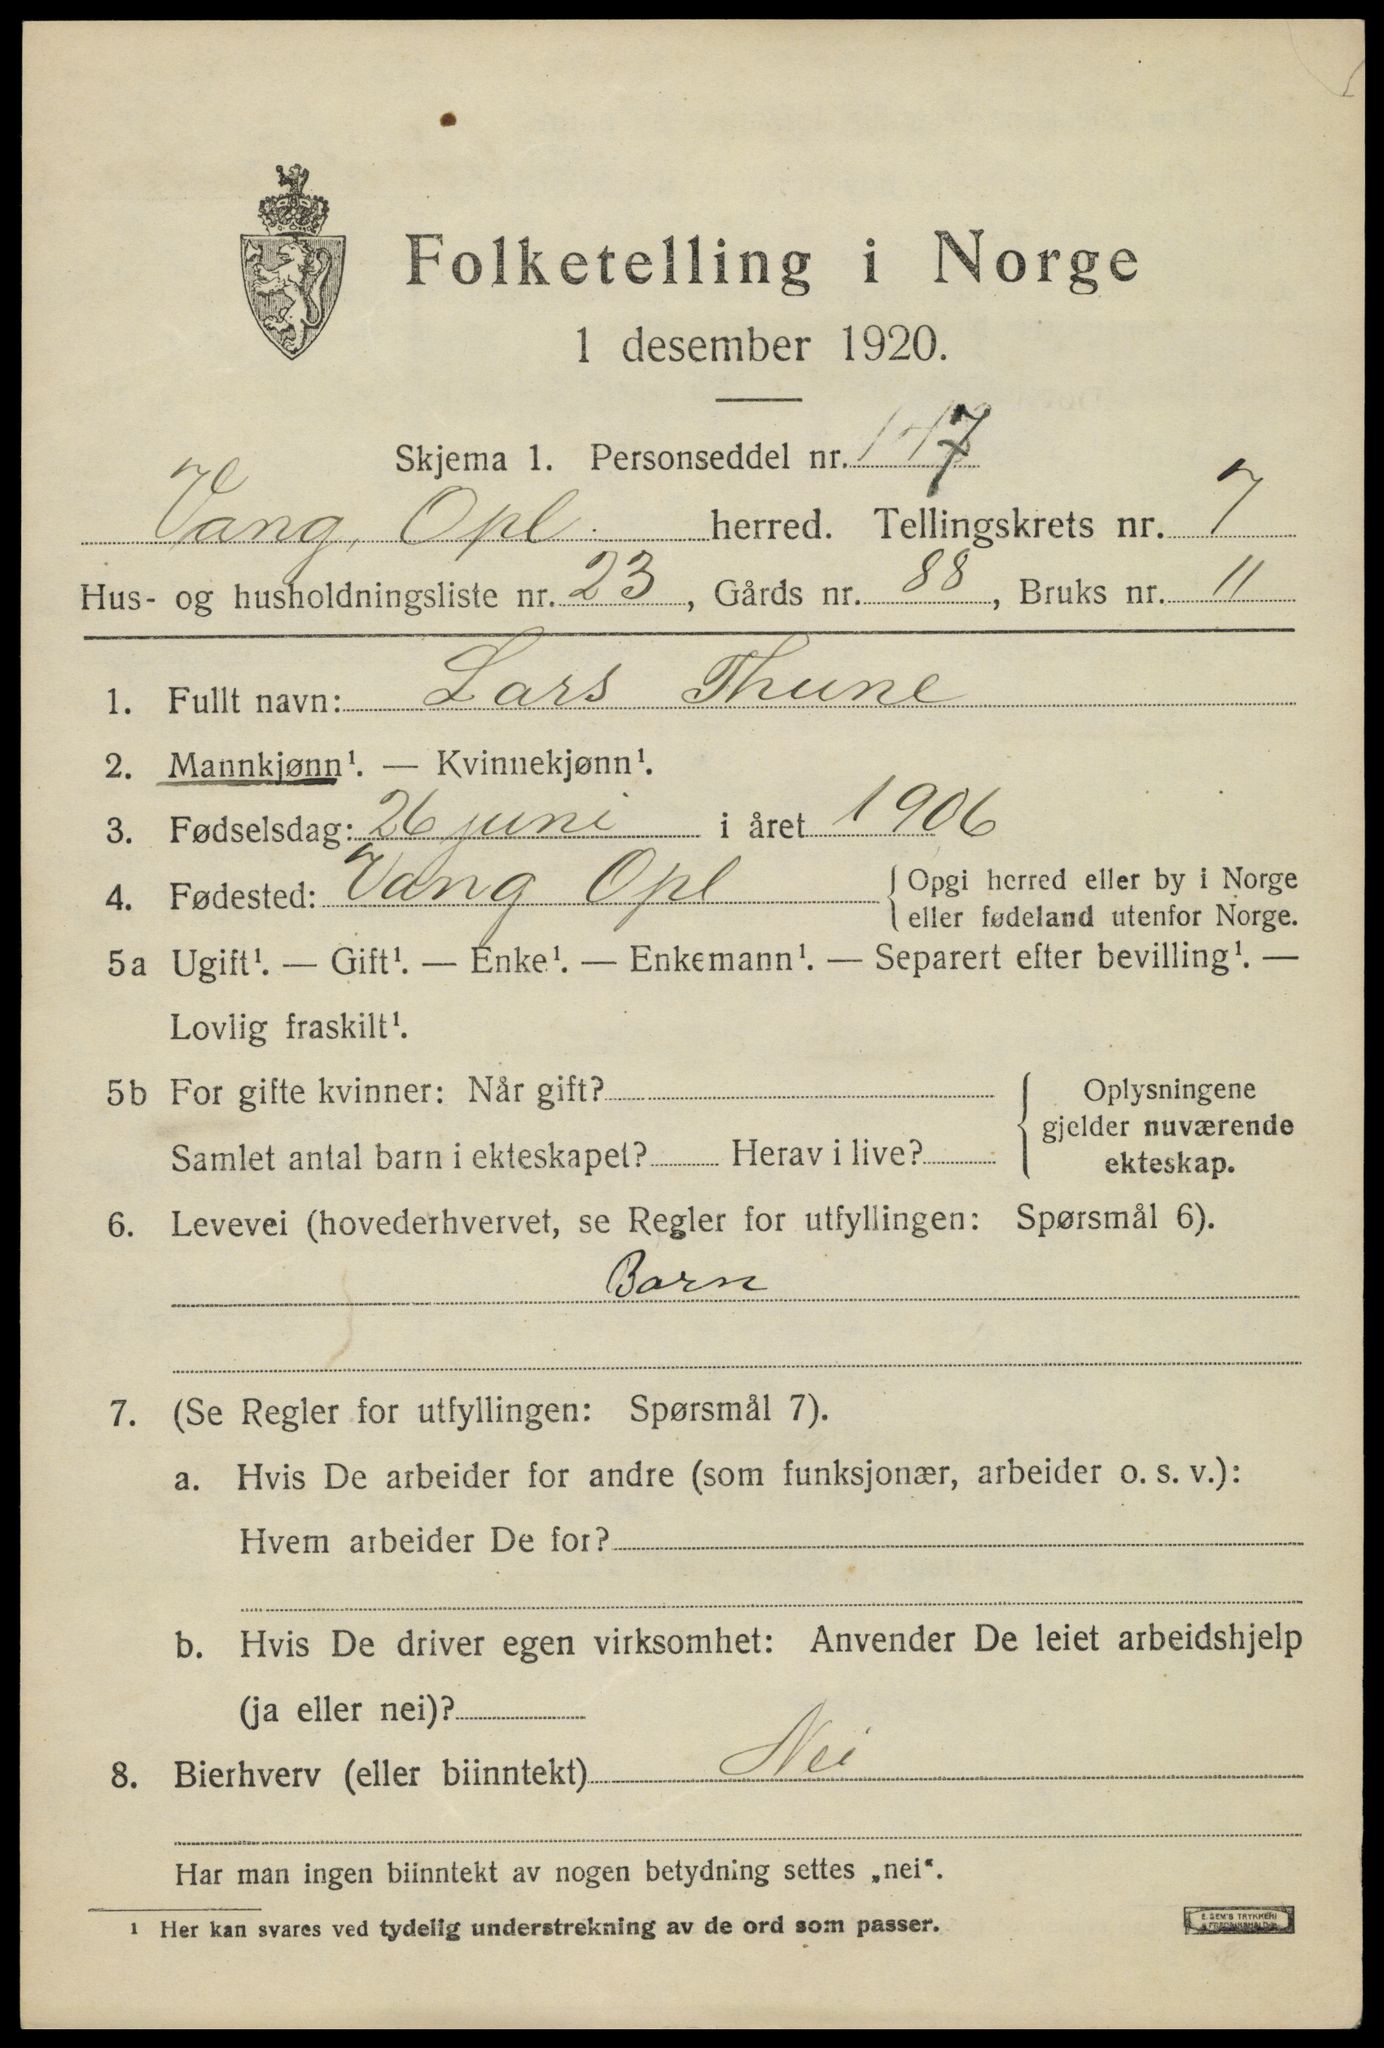 Folketelling i Norge
1 desember 1920.
Skjema 1. Personseddel nr. 147
Vang, Opl. herred. Tellingskrets nr. 7
Hus- og husholdningsliste nr. 23, Gårds nr. 88, Bruks nr. 11
1. Fullt navn: Lars Thune
2. Mannkjønn¹. — Kvinnekjønn¹.
3. Fødselsdag: 26 juni i året 1906
4. Fødested: Vang Opl {Opgi herred eller by i Norge
eller fødeland utenfor Norge.
5a Ugift¹. — Gift¹. — Enke¹. — Enkemann¹. — Separert efter bevilling¹. —
Lovlig fraskilt¹.
5b For gifte kvinner: Når gift? {Oplysningene
gjelder nuværende
Samlet antal barn i ekteskapet? Herav i live? ekteskap.
6. Levevei (hovederhvervet, se Regler for utfyllingen: Spørsmål 6).
Barn
7. (Se Regler for utfyllingen: Spørsmål 7).
a. Hvis De arbeider for andre (som funksjonær, arbeider o. s. v.):
Hvem arbeider De for?
b. Hvis De driver egen virksomhet: Anvender De leiet arbeidshjelp
(ja eller nei)?
8. Bierhverv (eller biinntekt) Nei
Har man ingen biinntekt av nogen betydning settes „nei“.
¹ Her kan svares ved tydelig understrekning av de ord som passer.
E. SEM'S TRYKKERI
FREDRIKSHALD